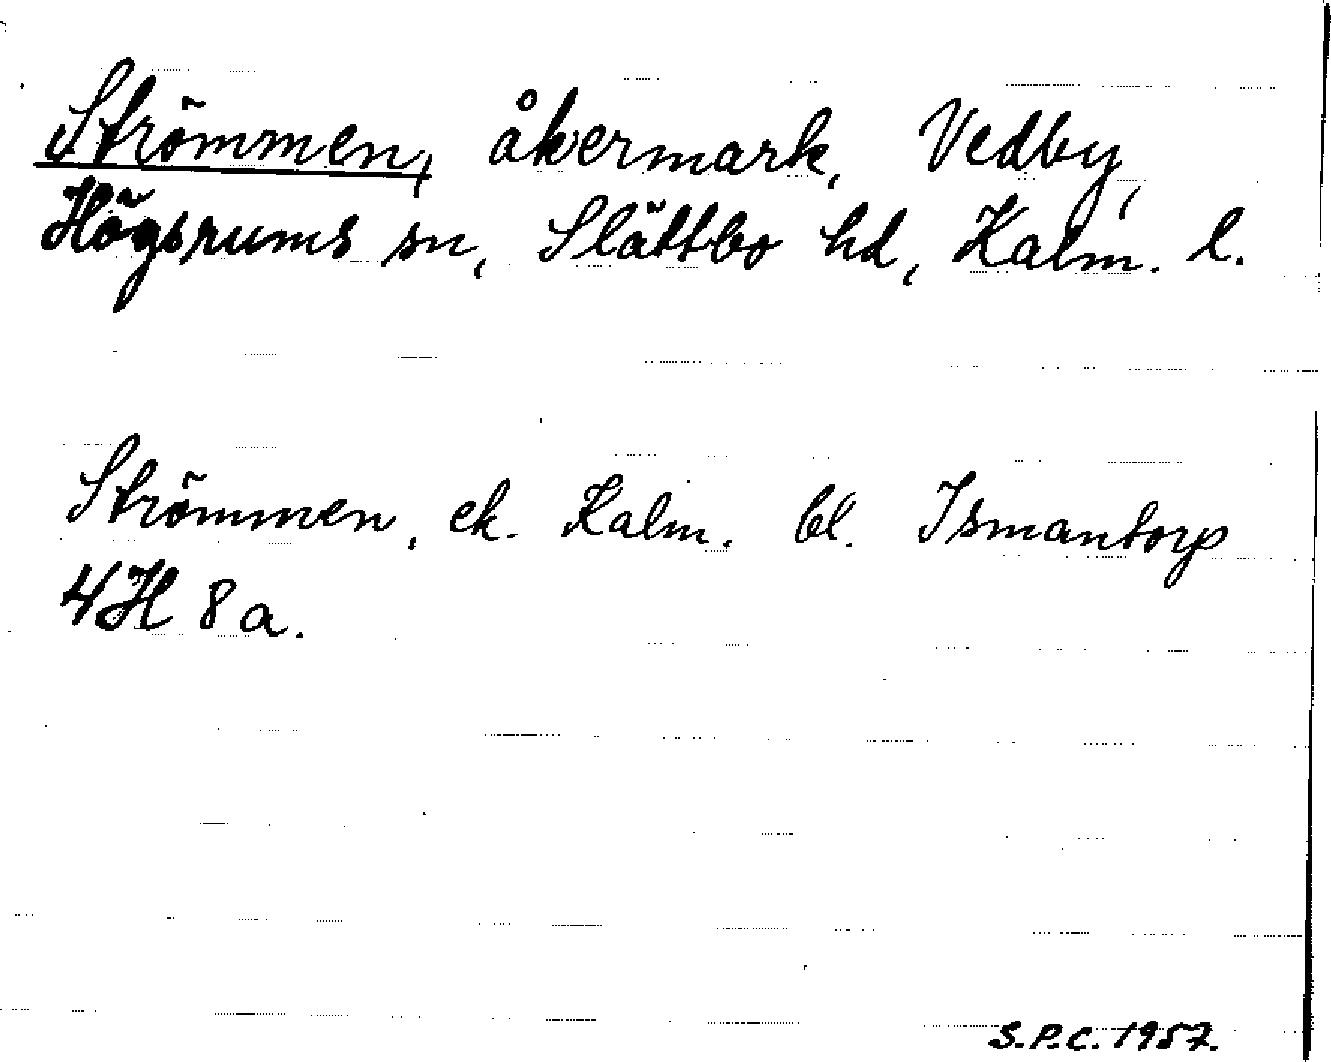 Strömmen, åkermark, Vedby,
Högsrums sn, Slättbo hd, Kalm. l.
Strömmen, ek. Kalm. bl. Ismantorp
4H 8a.
S.P.C. 1957.